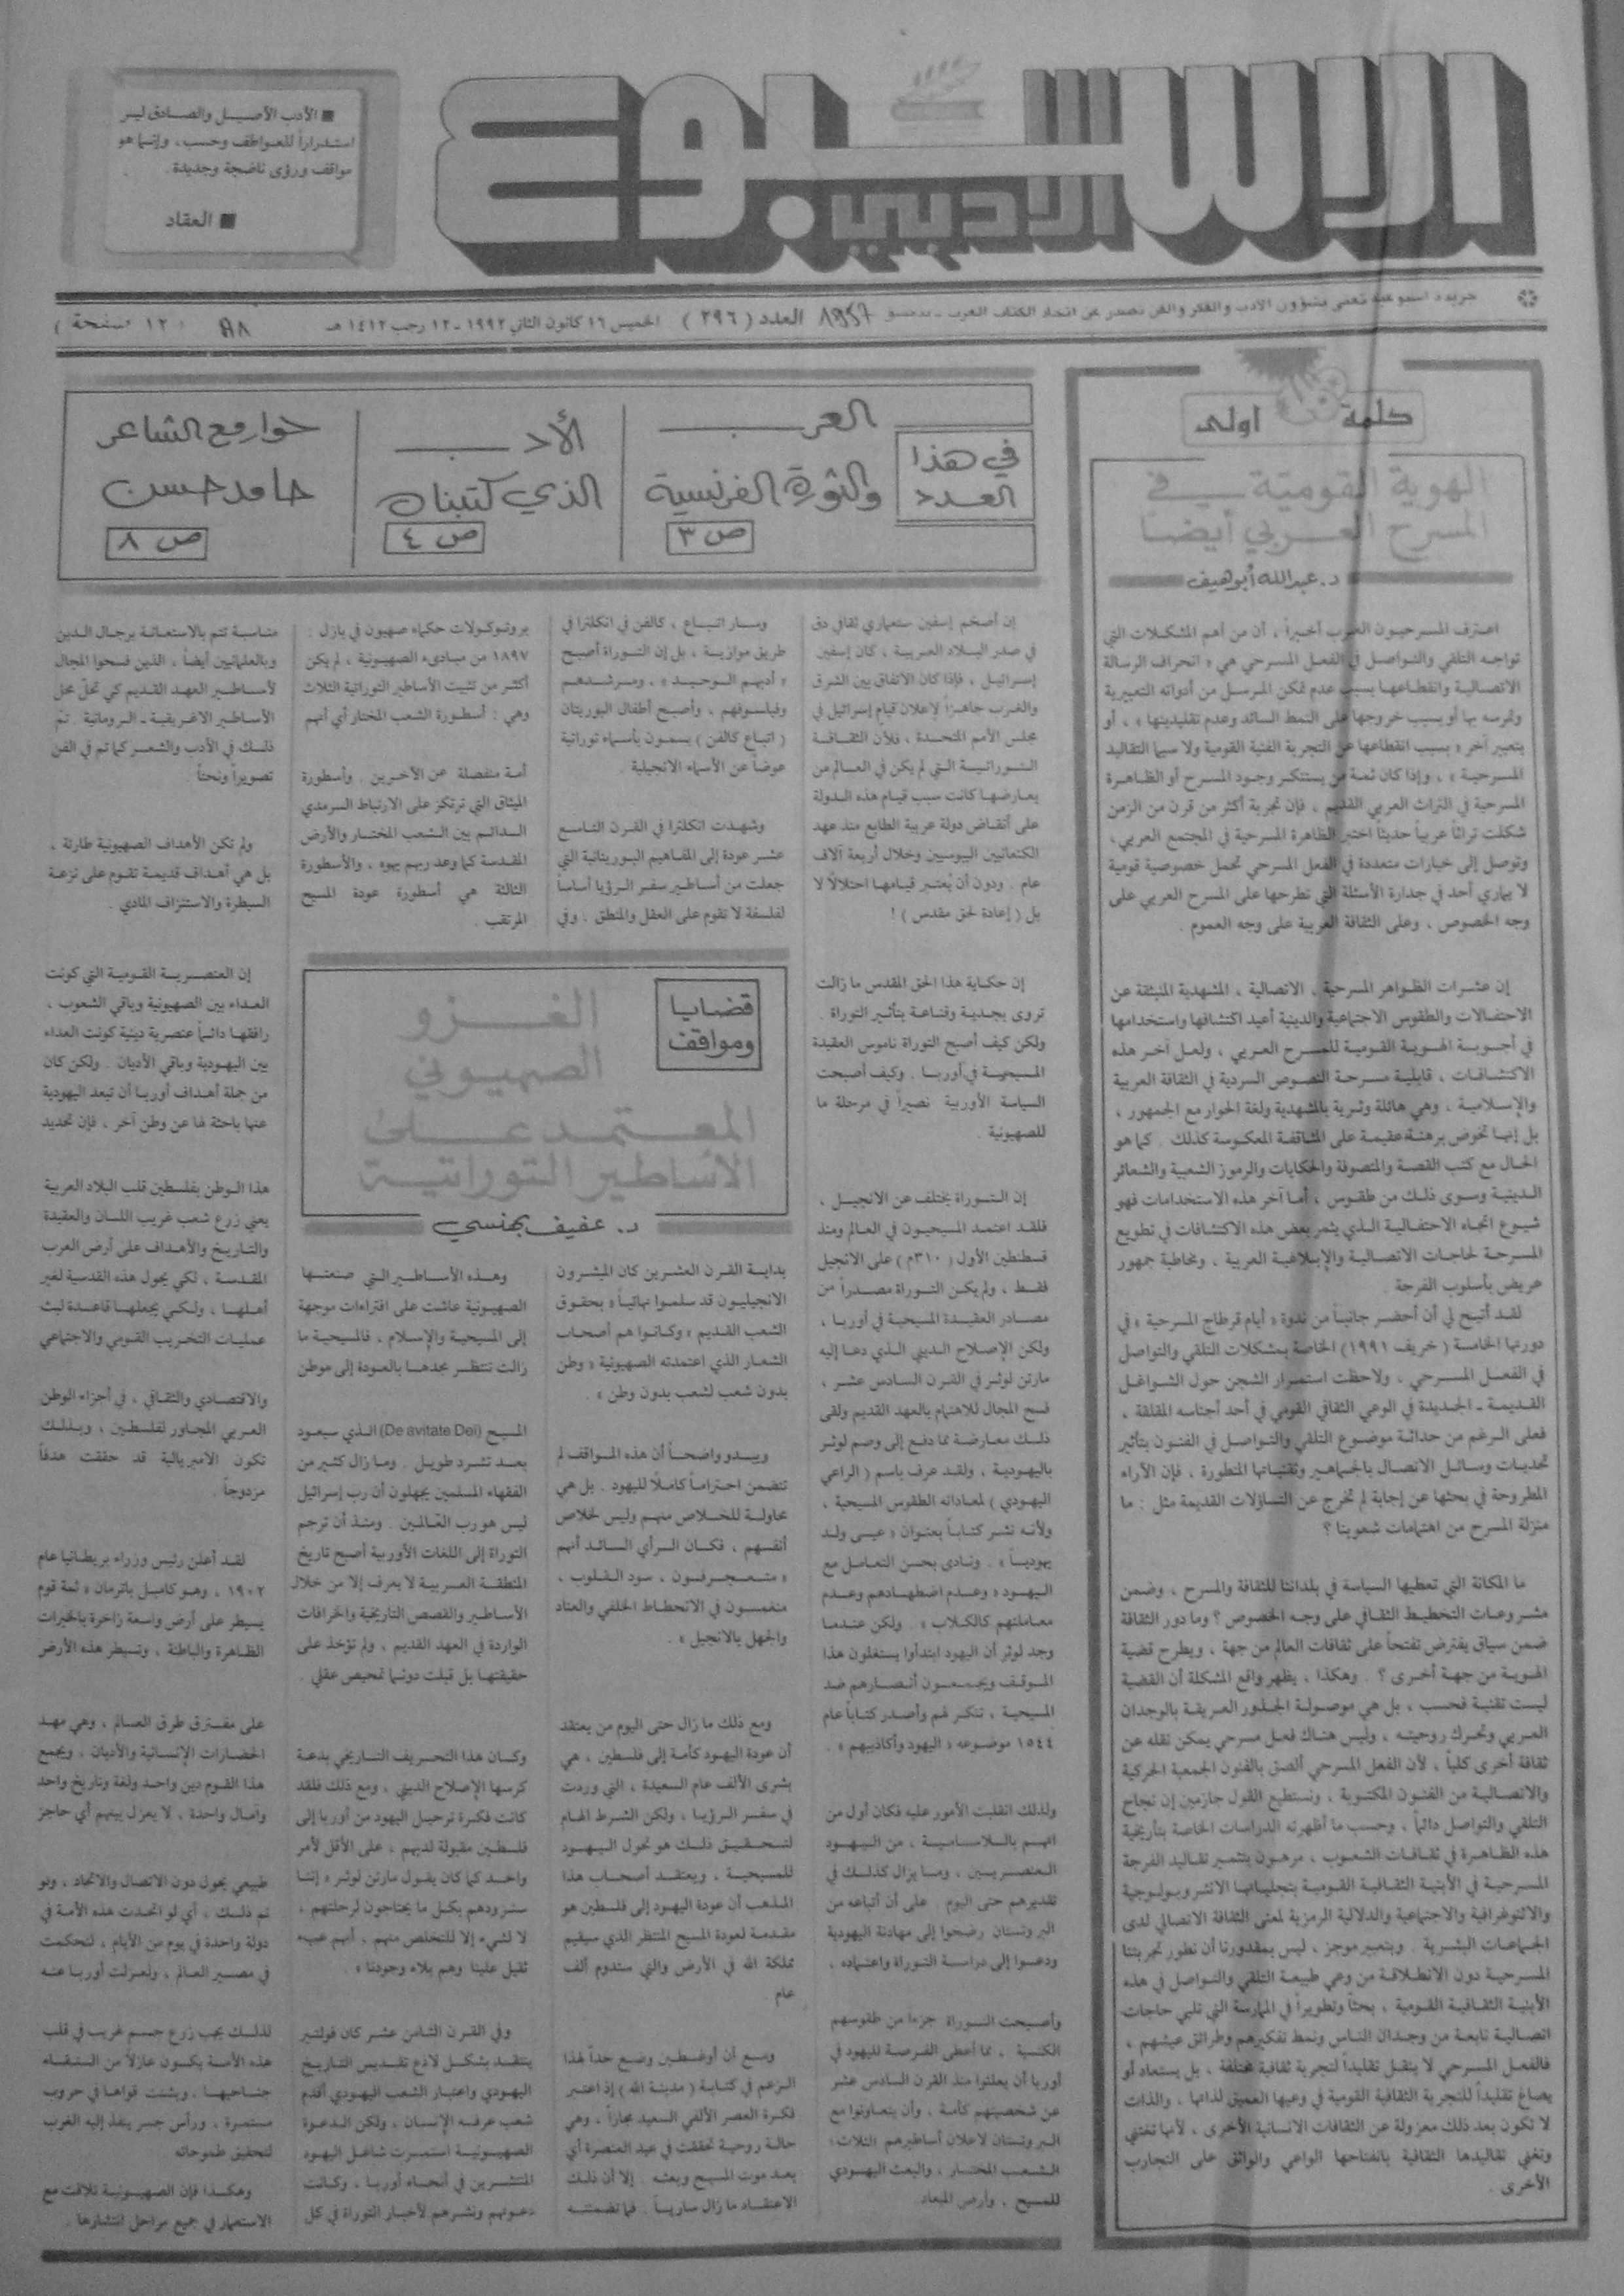 الأسبوع الأدبي
■ الأدب الأصيل والصادق ليس
استدراراً للعواطف وحسب، وإنما هو
مواقف ورؤى ناضجة وجديدة.
■ العقاد
جريدة اسبوعية تعنى بشؤون الأدب والفكر والفن تصدر عن اتحاد الكتاب العرب ـ بدمشق العدد (٢٩٦) الخميس ١٦ كانون الثاني ١٩٩٢ ـ ١٢ رجب ١٤١٢ هـ (١٢ صفحة)
كلمة اولى
الهوية القومية في
المسرح العربي أيضا
د. عبدالله أبوهيف
اعترف المسرحيون العرب أخيراً، أن من أهم المشكلات التي
تواجه التلقي والتواصل في الفعل المسرحي هي «انحراف الرسالة
الاتصالية وانقطاعها بسبب عدم تمكن المرسل من أدواته التعبيرية
وتمرسه بها أو بسبب خروجها على النمط السائد وعدم تقليديتها»، أو
بتعبير آخر «بسبب انقطاعها عن التجربة الفنية القومية ولا سيما التقاليد
المسرحية»، وإذا كان ثمة من يستنكر وجود المسرح أو الظاهرة
المسرحية في التراث العربي القديم، فإن تجربة أكثر من قرن من الزمن
شكلت تراثاً عربياً حديثاً اختبر الظاهرة المسرحية في المجتمع العربي،
وتوصل إلى خيارات متعددة في الفعل المسرحي تحمل خصوصية قومية
لا يماري أحد في جدارة الأسئلة التي تطرحها على المسرح العربي على
وجه الخصوص، وعلى الثقافة العربية على وجه العموم.
إن عشرات الظواهر المسرحية، الاتصالية، المشهدية المنبثقة عن
الاحتفالات والطقوس الاجتماعية والدينية أعيد اكتشافها واستخدامها
في أجوبة الهوية القومية للمسرح العربي، ولعل آخر هذه
الاكتشافات، قابلية مسرحة النصوص السردية في الثقافة العربية
والإسلامية، وهي هائلة وثرية بالمشهدية ولغة الحوار مع الجمهور،
بل إنها تخوض برهنة عقيمة على المثاقفة المعكوسة كذلك. كما هو
الحال مع كتب القصة والمتصوفة والحكايات والرموز الشعبية والشعائر
الدينية وسوى ذلك من طقوس، أما آخر هذه الاستخدامات فهو
شيوع اتجاه الاحتفالية الذي يثمر بعض هذه الاكتشافات في تطويع
المسرحة لحاجات الاتصالية والإبلاغية العربية، ومخاطبة جمهور
عريض بأسلوب الفرجة.
لقد أتيح لي أن أحضر جانباً من ندوة «أيام قرطاج المسرحية» في
دورتها الخامسة (خريف ١٩٩١) الخاصة بمشكلات التلقي والتواصل
في الفعل المسرحي، ولاحظت استمرار الشجن حول الشواغل
القديمة ـ الجديدة في الوعي الثقافي القومي في أحد أجناسه المقلقة،
فعلى الرغم من حداثة موضوع التلقي والتواصل في الفنون بتأثير
تحديات وسائل الاتصال بالجماهير وتقنياتها المتطورة، فإن الآراء
المطروحة في بحثها عن إجابة لم تخرج عن التساؤلات القديمة مثل: ما
منزلة المسرح من اهتمامات شعوبنا؟
ما المكانة التي تعطيها السياسة في بلداننا للثقافة والمسرح، وضمن
مشروعات التخطيط الثقافي على وجه الخصوص؟ وما دور الثقافة
ضمن سياق يفترض تفتحاً على ثقافات العالم من جهة، ويطرح قضية
الهوية من جهة أخرى؟. وهكذا، يظهر واقع المشكلة أن القضية
ليست تقنية فحسب، بل هي موصولة الجذور العريقة بالوجدان
العربي وتحرك روحيته، وليس هناك فعل مسرحي يمكن نقله عن
ثقافة أخرى كلياً، لأن الفعل المسرحي ألصق بالفنون الجمعية الحركية
والاتصالية من الفنون المكتوبة، ونستطيع القول جازمين إن نجاح
التلقي والتواصل دائماً، وحسب ما أظهرته الدراسات الخاصة بتأريخية
هذه الظاهرة في ثقافات الشعوب، مرهون بتثمير تقاليد الفرجة
المسرحية في الأبنية الثقافية القومية بتجلياتها الانثروبولوجية
والاثنوغرافية والاجتماعية والدلالية الرمزية لمعنى الثقافة الاتصالي لدى
الجماعات البشرية. وبتعبير موجز، ليس بمقدورنا أن نطور تجربتنا
المسرحية دون الانطلاقة من وعي طبيعة التلقي والتواصل في هذه
الأبنية الثقافية القومية، بحثاً وتطويراً في الممارسة التي تلبي حاجات
اتصالية نابعة من وجدان الناس ونمط تفكيرهم وطرائق عيشهم،
فالفعل المسرحي لا ينقل تقليداً لتجربة ثقافية مختلفة، بل يستعاد أو
يصاغ تقليداً للتجربة الثقافية القومية في وعيها العميق لذاتها، والذات
لا تكون بعد ذلك معزولة عن الثقافات الانسانية الأخرى، لأنها تغتني
وتغني تقاليدها الثقافية بانفتاحها الواعي والواثق على التجارب
الأخرى.
في هذا
العدد
العرب
والثورة الفرنسية
ص ٣
الأدب
الذي كتبناه
ص ٤
حوار مع الشاعر
حامد حسن
ص ٨
قضايا
ومواقف
الغزو
الصهيوني
المعتمد على
الأساطير التوراتية
د. عفيف بهنسي
إن أضخم إسفين استعماري ثقافي دق
في صدر البلاد العربية، كان إسفين
إسرائيل، فإذا كان الاتفاق بين الشرق
والغرب جاهزاً لإعلان قيام إسرائيل في
مجلس الأمم المتحدة، فلأن الثقافة
التوراتية التي لم يكن في العالم من
يعارضها كانت سبب قيام هذه الدولة
على أنقاض دولة عربية الطابع منذ عهد
الكنعانيين اليبوسيين وخلال أربعة آلاف
عام. ودون أن يُعتبر قيامها احتلالاً لا
بل (إعادة لحق مقدس)!
إن حكاية هذا الحق المقدس ما زالت
تروى بجدية وقناعة بتأثير التوراة.
ولكن كيف أصبح التوراة ناموس العقيدة
المسيحية في أوربا. وكيف أصبحت
السياسة الأوربية نصيراً في مرحلة ما
للصهيونية.
إن التوراة يختلف عن الانجيل،
فلقد اعتمد المسيحيون في العالم ومنذ
قسطنطين الأول (٣١٠م) على الانجيل
فقط، ولم يكن التوراة مصدراً من
مصادر العقيدة المسيحية في أوربا،
ولكن الإصلاح الديني الذي دعا إليه
مارتن لوثر في القرن السادس عشر،
فسح المجال للاهتمام بالعهد القديم ولقى
ذلك معارضة مما دفع إلى وصم لوثر
باليهودية، ولقد عرف باسم (الراعي
اليهودي) لمعاداته الطقوس المسيحية،
ولأنه نشر كتاباً بعنوان «عيسى ولد
يهودياً». ونادى بحسن التعامل مع
اليهود «وعدم اضطهادهم وعدم
معاملتهم كالكلاب». ولكن عندما
وجد لوثر أن اليهود ابتدأوا يستغلون هذا
الموقف ويجمعون أنصارهم ضد
المسيحية، تنكر لهم وأصدر كتاباً عام
١٥٤٤ موضوعه «اليهود وأكاذيبهم».
ولذلك انقلبت الأمور عليه فكان أول من
اتهم باللاسامية، من اليهود
العنصريين، وما يزال كذلك في
تقديرهم حتى اليوم. على أن أتباعه من
البروتستان رضخوا إلى مهادنة اليهودية
ودعوا إلى دراسة التوراة واعتماده،
وأصبحت التوراة جزءاً من طقوسهم
الكنسية، مما أعطى الفرصة لليهود في
أوربا أن يعلنوا منذ القرن السادس عشر
عن شخصيتهم كأمة، وأن يتعاونوا مع
البروتستان لاعلان أساطيرهم الثلاث؛
الشعب المختار، والبعث اليهودي
للمسيح، وأرض الميعاد.
وسار اتباع، كالفن في انكلترا في
طريق موازية، بل إن التوراة أصبح
«أدبهم الوحيد»، ومرشدهم
وفيلسوفهم، وأصبح أطفال البوريتان
(اتباع كالفن) يسمون بأسماء توراتية
عوضاً عن الأسماء الانجيلية.
وشهدت انكلترا في القرن التاسع
عشر عودة إلى المفاهيم البوريتانية التي
جعلت من أساطير سفر الرؤيا أساساً
لفلسفة لا تقوم على العقل والمنطق. وفي
بداية القرن العشرين كان المبشرون
الانجيليون قد سلموا نهائياً «بحقوق
الشعب القديم» وكانوا هم أصحاب
الشعار الذي اعتمدته الصهيونية «وطن
بدون شعب لشعب بدون وطن».
ويبدو واضحاً أن هذه المواقف لم
تتضمن احتراماً كاملاً لليهود. بل هي
محاولة للخلاص منهم وليس لخلاص
أنفسهم، فكان الرأي السائد أنهم
«متعجرفون، سود القلوب،
منغمسون في الانحطاط الخلقي والعناد
والجهل بالانجيل».
ومع ذلك ما زال حتى اليوم من يعتقد
أن عودة اليهود كأمة إلى فلسطين، هي
بشرى الألف عام السعيدة، التي وردت
في سفر الرؤيا، ولكن الشرط الهام
لتحقيق ذلك هو تحول اليهود
للمسيحية، ويعتقد أصحاب هذا
المذهب أن عودة اليهود إلى فلسطين هو
مقدمة لعودة المسيح المنتظر الذي سيقيم
مملكة الله في الأرض والتي ستدوم ألف
عام.
ومع أن أوغسطين وضع حداً لهذا
الزعم في كتابة (مدينة الله) إذ اعتبر
فكرة العصر الألفي السعيد مجازاً، وهي
حالة روحية تحققت في عيد العنصرة أي
بعد موت المسيح وبعثه. إلا أن ذلك
الاعتقاد ما زال سارياً. فما تضمنته
بروتوكولات حكماء صهيون في بازل:
١٨٩٧ من مبادىء الصهيونية، لم يكن
أكثر من تثبيت الأساطير التوراتية الثلاث
وهي: أسطورة الشعب المختار أي أنهم
أمة منفصلة عن الآخرين. وأسطورة
الميثاق التي ترتكز على الارتباط السرمدي
الدائم بين الشعب المختار والأرض
المقدسة كما وعد ربهم يهوه، والأسطورة
الثالثة هي أسطورة عودة المسيح
المرتقب.
وهذه الأساطير التي صنعتها
الصهيونية عاشت على افتراءات موجهة
إلى المسيحية والإسلام، فالمسيحية ما
زالت تنتظر مجدها بالعودة إلى موطن
المسيح (De avitate Dei) الذي سيعود
بعد تشرد طويل. وما زال كثير من
الفقهاء المسلمين يجهلون أن رب إسرائيل
ليس هو رب العالمين. ومنذ أن ترجم
التوراة إلى اللغات الأوربية أصبح تاريخ
المنطقة العربية لا يعرف إلا من خلال
الأساطير والقصص التاريخية والخرافات
الواردة في العهد القديم، ولم تؤخذ على
حقيقتها بل قبلت دونما تمحيص عقلي.
وكان هذا التحريف التاريخي بدعة
كرسها الإصلاح الديني، ومع ذلك فلقد
كانت فكرة ترحيل اليهود من أوربا إلى
فلسطين مقبولة لديهم، على الأقل لأمر
واحد كما كان يقول مارتن لوثر «إننا
سنزودهم بكل ما يحتاجون لرحلتهم،
لا لشيء إلا للتخلص منهم، أنهم عبء
ثقيل علينا وهم بلاء وجودنا».
وفي القرن الثامن عشر كان فولتير
ينتقد بشكل لاذع تقديس التاريخ
اليهودي واعتبار الشعب اليهودي أقدم
شعب عرفه الإنسان، ولكن الدعوة
الصهيونية استمرت شاغل اليهود
المنتشرين في أنحاء أوربا، وكانت
دعوتهم ونشرهم لأخبار التوراة في كل
مناسبة تتم بالاستعانة برجال الدين
وبالعلمانيين أيضاً، الذين فسحوا المجال
لأساطير العهد القديم كي تحلّ محل
الأساطير الاغريقية ـ الرومانية. تم
ذلك في الأدب والشعر كما تم في الفن
تصويراً ونحتاً.
ولم تكن الأهداف الصهيونية طارئة،
بل هي أهداف قديمة تقوم على نزعة
السيطرة والاستنزاف المادي.
إن العنصرية القومية التي كونت
العداء بين الصهيونية وباقي الشعوب،
رافقها دائماً عنصرية دينية كونت العداء
بين اليهودية وباقي الأديان. ولكن كان
من جملة أهداف أوربا أن تبعد اليهودية
عنها باحثة لها عن وطن آخر، فإن تحديد
هذا الوطن بفلسطين قلب البلاد العربية
يعني زرع شعب غريب اللسان والعقيدة
والتاريخ والأهداف على أرض العرب
المقدسة، لكي يحول هذه القدسية لغير
أهلها، ولكي يجعلها قاعدة لبث
عمليات التخريب القومي والاجتماعي
والاقتصادي والثقافي، في أجزاء الوطن
العربي المجاور لفلسطين، وبذلك
تكون الامبريالية قد حققت هدفاً
مزدوجاً.
لقد أعلن رئيس وزراء بريطانيا عام
١٩٠٢، وهو كامبل باترمان «ثمة قوم
يسيطر على أرض واسعة زاخرة بالخيرات
الظاهرة والباطنة، وتسيطر هذه الأرض
على مفترق طرق العالم، وهي مهد
الحضارات الإنسانية والأديان، ويجمع
هذا القوم دين واحد ولغة وتاريخ واحد
وآمال واحدة، لا يعزل بينهم أي حاجز
طبيعي يحول دون الاتصال والاتحاد، ولو
تم ذلك، أي لو اتحدت هذه الأمة في
دولة واحدة في يوم من الأيام، لتحكمت
في مصير العالم، ولعزلت أوربا عنه
لذلك يجب زرع جسم غريب في قلب
هذه الأمة يكون عازلاً من التقاء
جناحيها، ويشتت قواها في حروب
مستمرة، ورأس جسر ينفذ إليه الغرب
لتحقيق طموحاته
وهكذا فإن الصهيونية تلاقت مع
الاستعمار في جميع مراحل انتشارها.